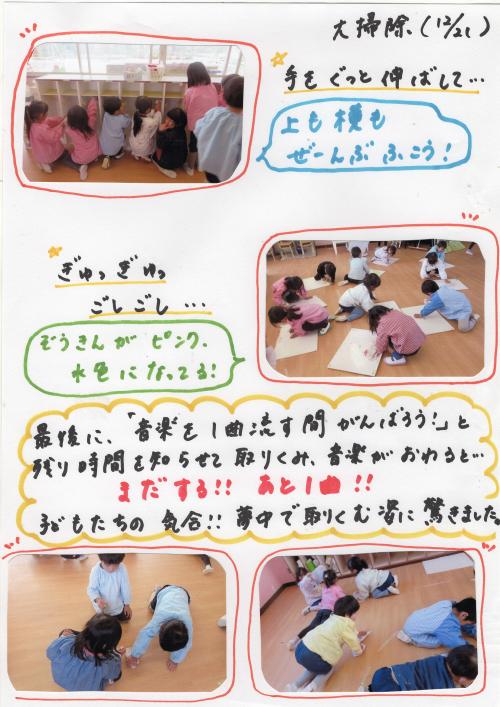 大掃除(12/21)
手をぐっと伸ばして…
上も横も
ぜーんぶふこう!
ぎゅっぎゅっ
ごしごし…
ぞうきんがピンク、
水色になってる!
最後に、「音楽を1曲流す間がんばろう!」と
残り時間を知らせて取りくみ、音楽がおわると…
まだする!! あと1曲!!
子どもたちの気合!!夢中で取りくむ姿に驚きました